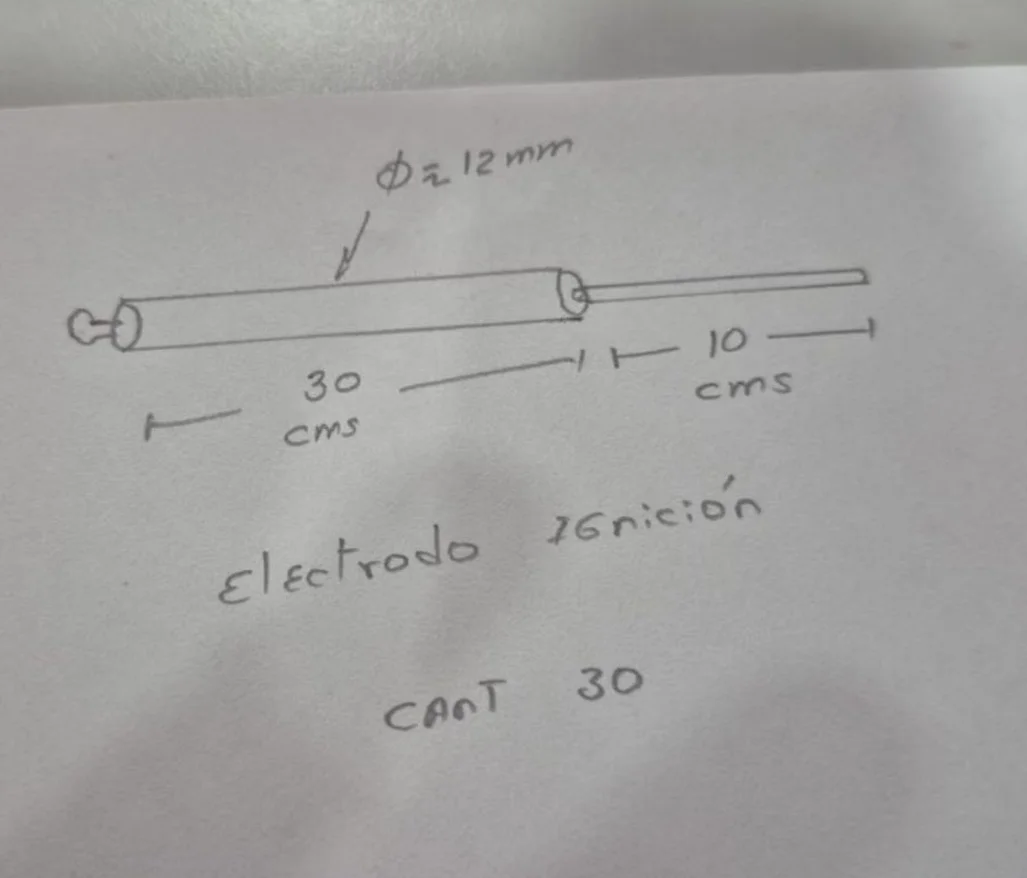 Φ≈12 mm
30
cms
10
cms
Electrodo IGnición
CAnT 30